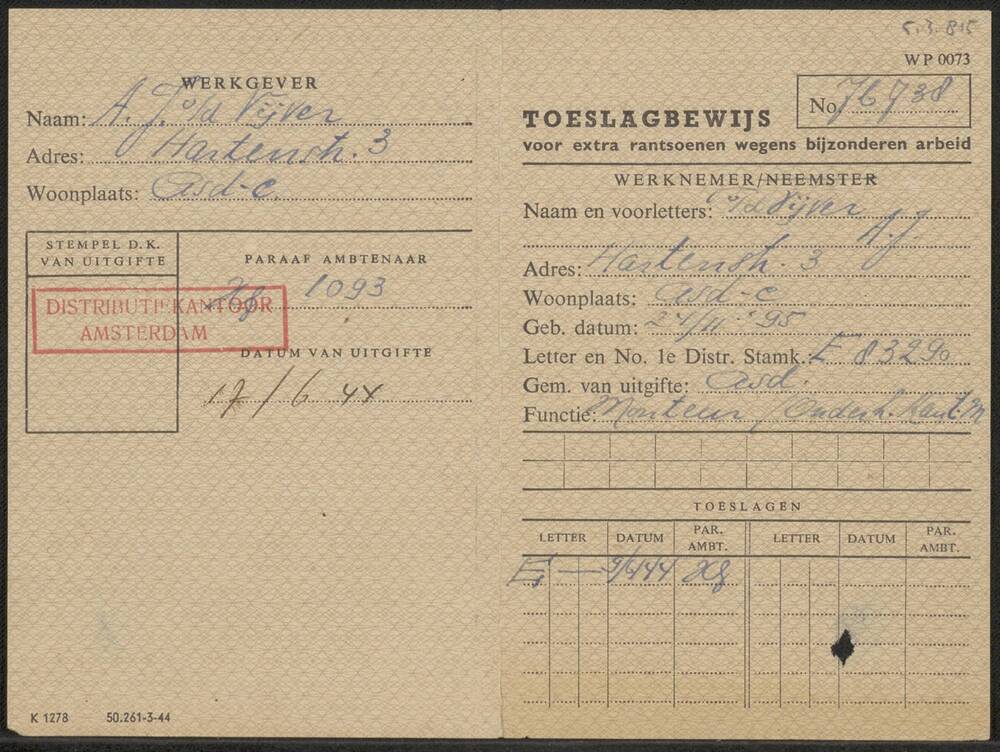 WERKGEVER
Naam: A. J. v/d Vijver
Adres: Hartenstr. 3
Woonplaats: Asd-C.
STEMPEL D.K.
VAN UITGIFTE
DISTRIBUTIEKANTOOR
AMSTERDAM
PARAAF AMBTENAAR
1093
DATUM VAN UITGIFTE
17/6 44
K 1278 50.261-3-44
5.3.815
WP 0073
No 76738
TOESLAGBEWIJS
voor extra rantsoenen wegens bijzonderen arbeid
WERKNEMER/NEEMSTER
Naam en voorletters: v/d Vijver
A.J.
Adres: Hartenstr. 3
Woonplaats: Asd-C
Geb. datum: 24/11 - 95
Letter en No. 1e Distr. Stamk.: E 83290
Gem. van uitgifte: Asd.
Functie: Monteur / Onderh. Kant. M
TOESLAGEN
LETTER DATUM PAR. AMBT. LETTER DATUM PAR. AMBT.
E 9/6 44